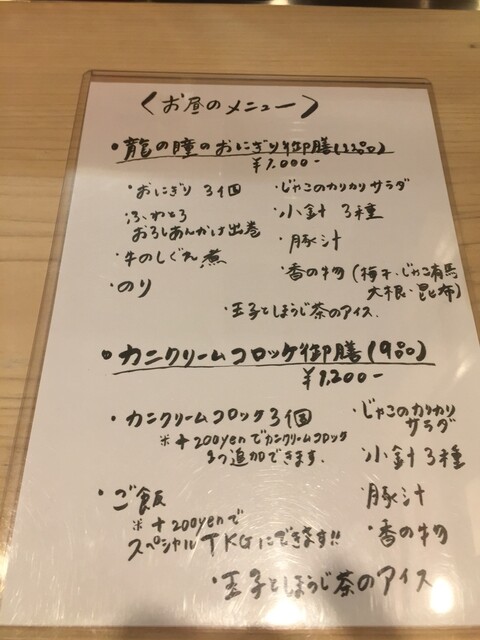 〈お昼のメニュー〉
・龍の瞳のおにぎり御膳(12品)
¥1,000-
・おにぎり 3個
・じゃこのカリカリサラダ
・ふわとろ
おろしあんかけ出巻
・小針 3種
・豚汁
・牛のしぐれ煮
・香の物(梅干・じゃこ有馬
大根・昆布)
・のり
・玉子とほうじ茶のアイス.
・カニクリームコロッケ御膳(9品)
¥1,200-
・カニクリームコロッケ3個
※+200yenでカニクリームコロッケ
1つ追加できます.
・じゃこのカリカリ
サラダ
・小針3種
・ご飯
※+200yenで
スペシャルTKGにできます!!
・豚汁
・香の物
・玉子とほうじ茶のアイス